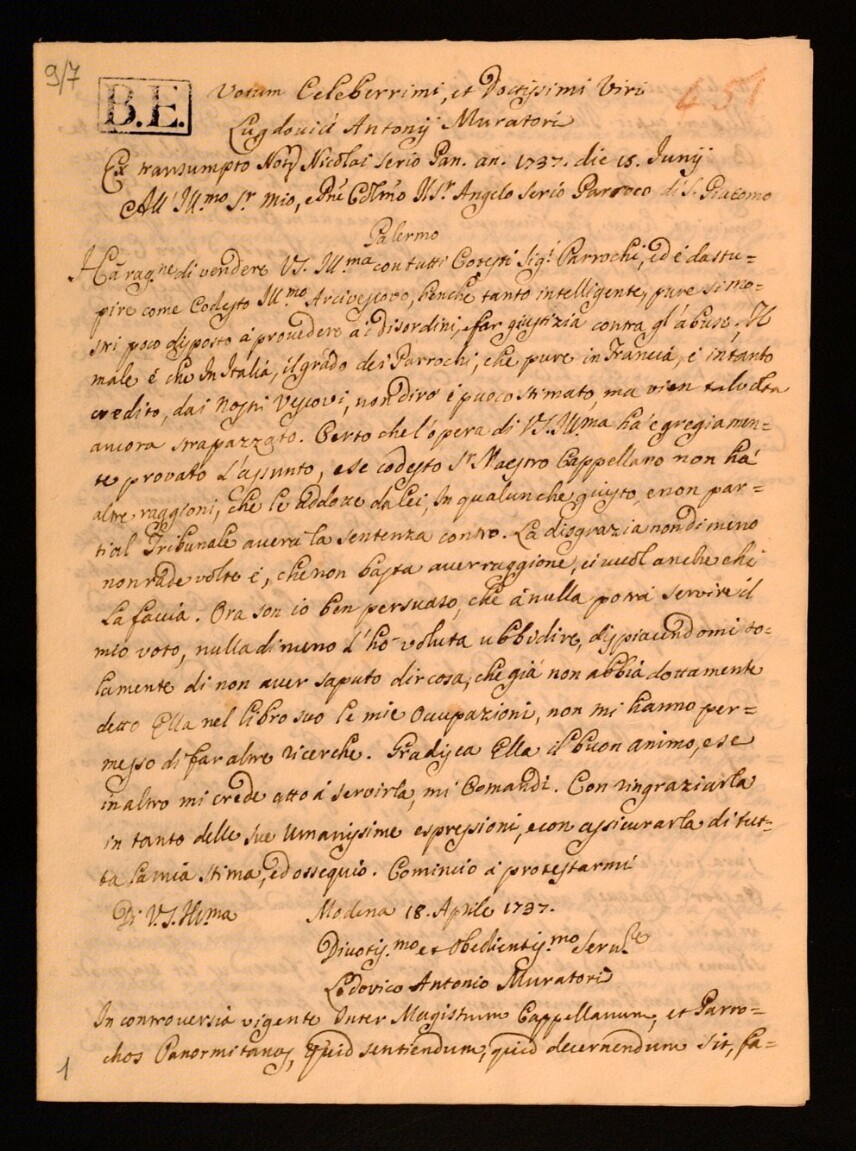 9/7
B.E.
451
Votum Celeberrimi, et Doctissimi Viri
Lugdovici Antonij Muratori
Ex transumpto Notr Nicolai Serio Pan. an. 1737. die 18. Junij
All' Ill.mo Sr mio, e Pne Colmo Il Sr Angelo Serio Parroco di S. Giacomo
Palermo
Ha rag.ne di vendere VS. Ill.ma con tutti Cotesti Sigi Parrochi, ed é da stu=
pire come Codesto Ill.mo Arcivescovo, benche tanto intelligente, pure si mo=
stri poco disposto á provedere a i disordini, e far giustizia contra gl'abusi. Il
male é che In Italia, il grado dei Parrochi, che pure in Francia, é in tanto
credito, dai Nostri Vescovi, non diró é puoco stimato, ma vien talvolta
ancora strapazzato. Certo che l'opera di VS. Ill.ma ha egregiamen=
te provato l'assunto, e se codesto Sr Maestro Cappellano non há
altre raggioni, che le addotte da lei, In qualunche giusto, e non par=
tial Tribunale averá la sentenza contro. La disgrazia nondimeno
non rade volte é, che non basta aver raggione, ci vuol anche chi
la faccia. Ora son io ben persuaso, che á nulla potrá servire il
mio voto, nulladimeno l'hó voluta ubbidire, dispiacendomi so=
lamente di non aver saputo dir cosa, che giá non abbia dottamente
detto Ella nel libro suo le mie Ocupazioni, non mi hanno per=
messo di far altre ricerche. Gradisca Ella il buon animo, e se
in altro mi crede atto á servirla, mi Comandi. Con ringraziarla
in tanto delle sue Umanissime espressioni, e con assicurarla di tut=
ta la mia stima, ed ossequio. Comincio á protestarmi
Di VS. Ill.ma Modena 18. Aprile 1737.
Divotis.mo et Obedientis.mo Serv.e
Lodovico Antonio Muratori
In controversia vigente Inter Magistrum Cappellanum, et Parro=
chos Panormitanos, Quid sentiendum, quid decernendum sit, fa=
1